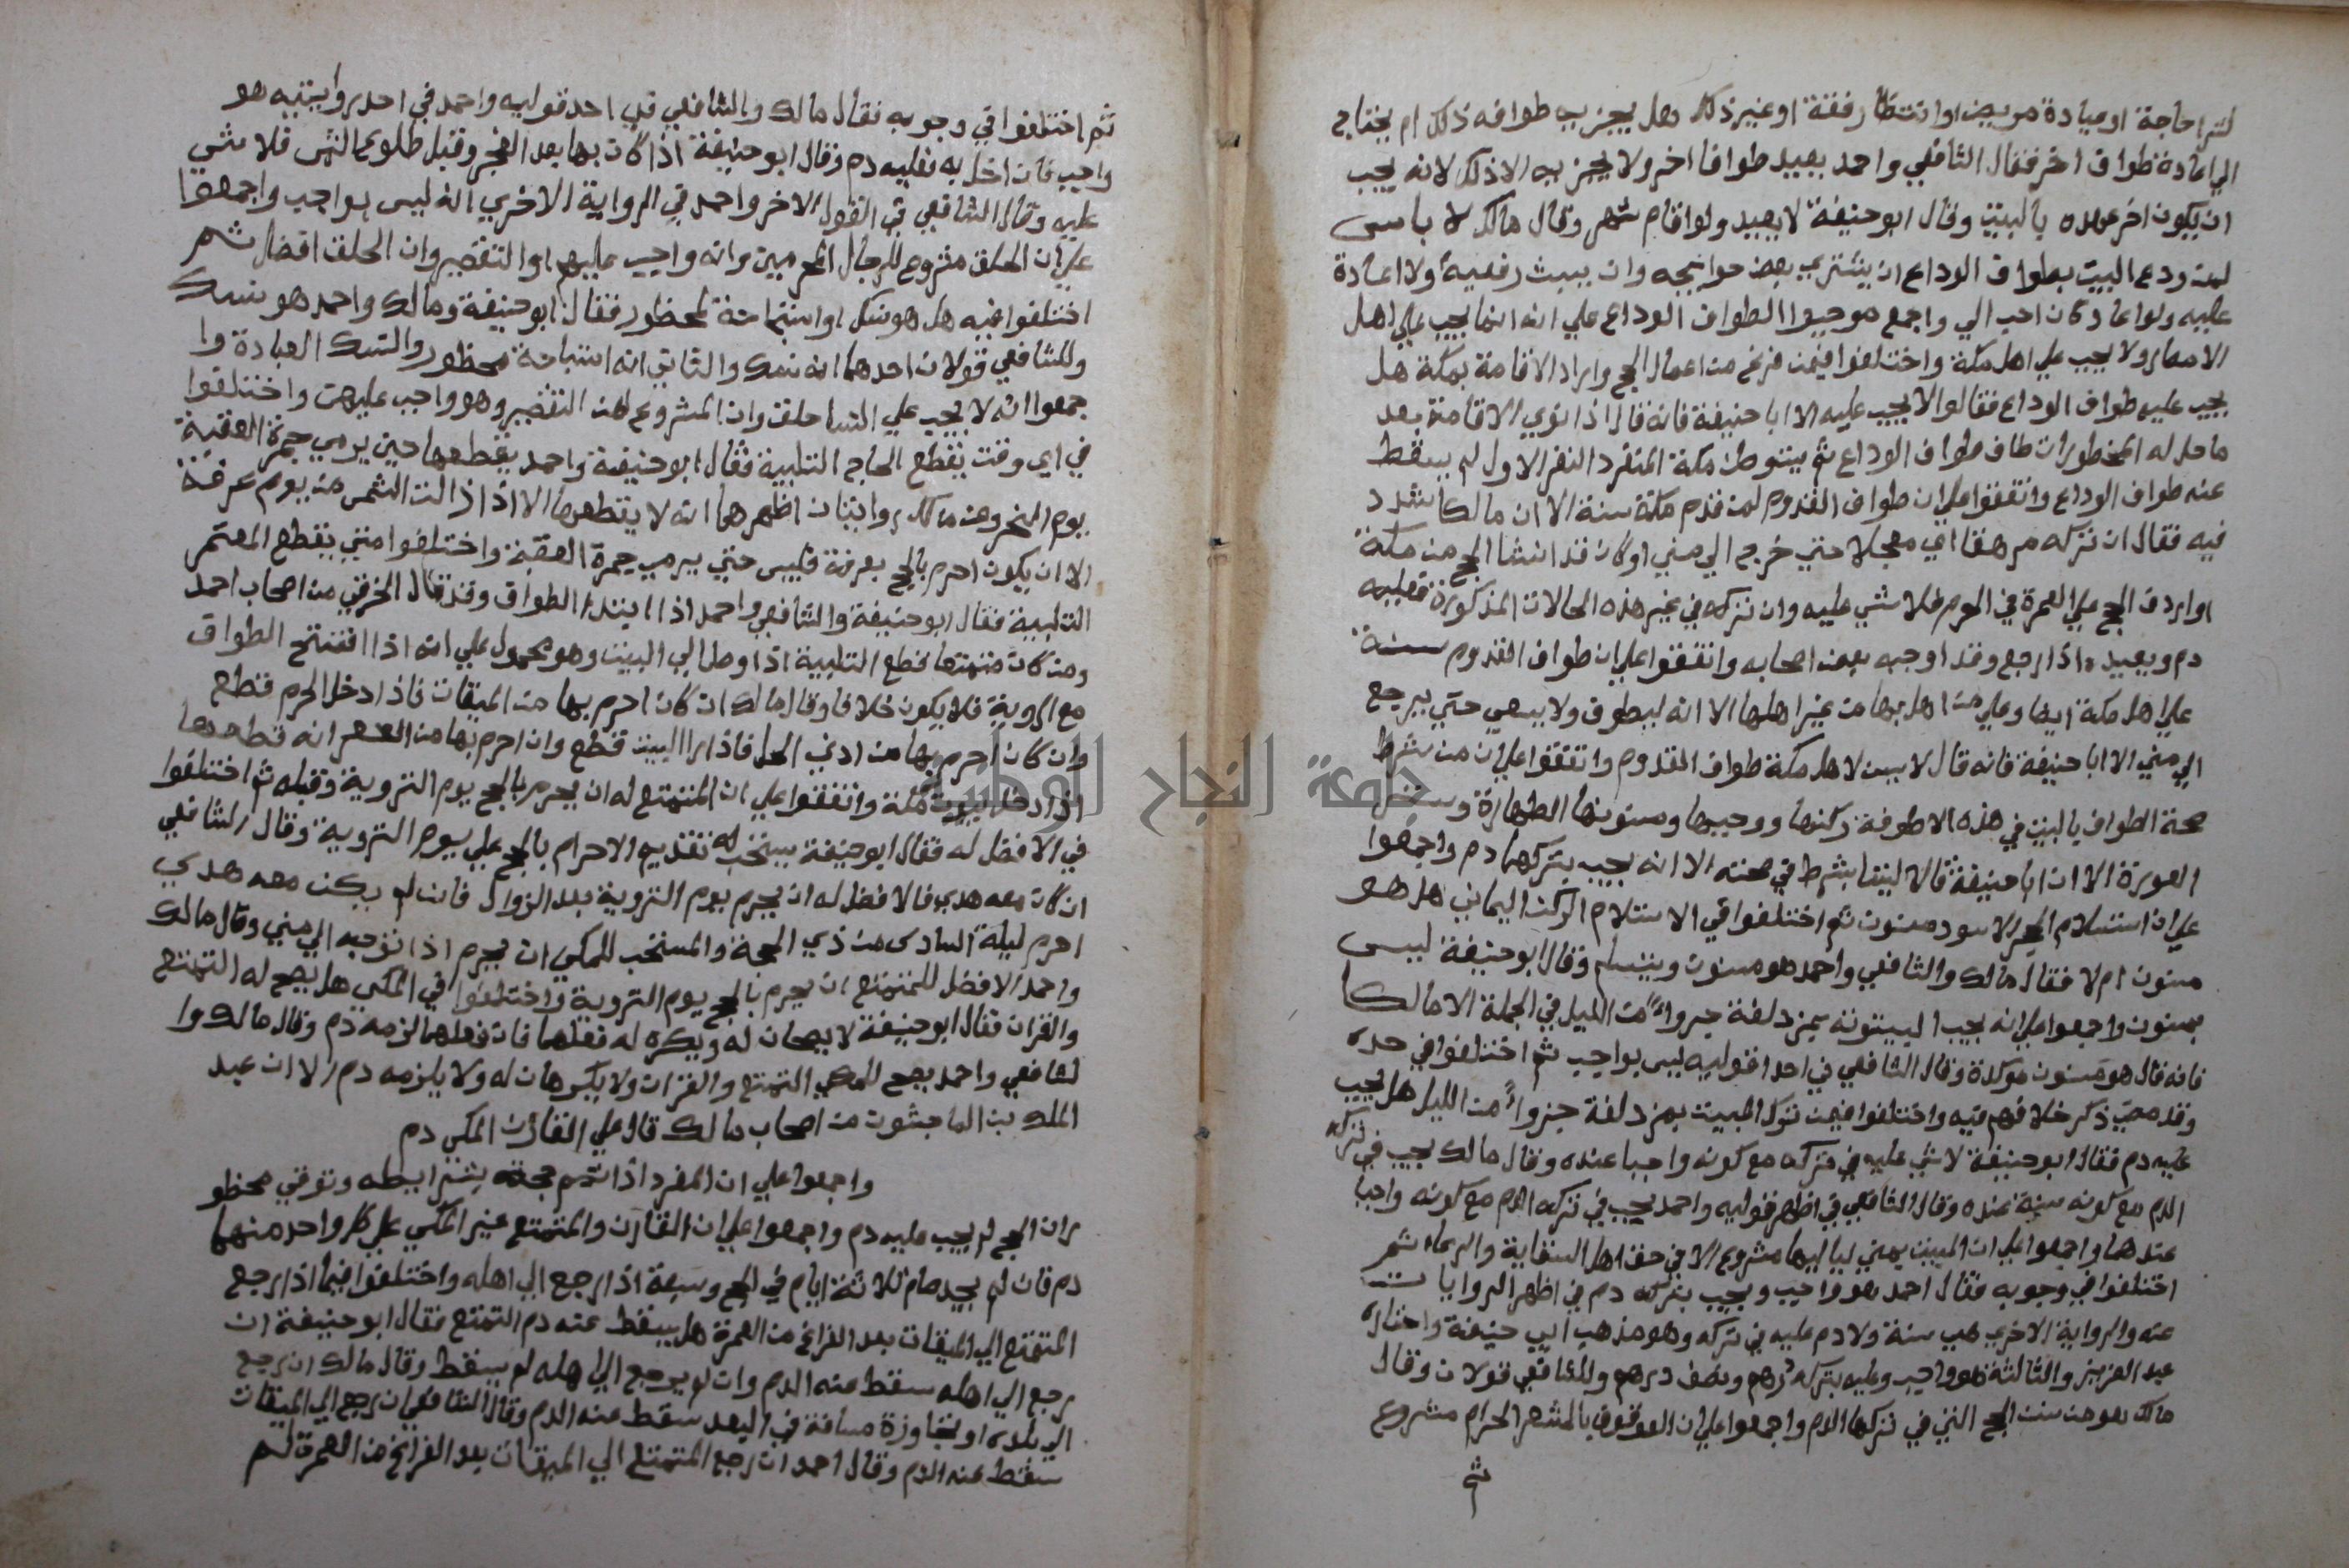 لشراء حاجة او عيادة مريض او انتظار رفقة او غير ذلك وهل يجزيه طوافه ذلك ام يحتاج
الي اعادة طواف اخر فقال الشافعي واحمد يعيد طوافا اخر ولا يجزيه الا ذلك لانه يجب
ان يكون اخر عهده بالبيت وقال ابو حنيفة لا يعيد ولو اقام شهر وقال مالك لا باس
لمن ودع البيت بطواف الوداع ان يشتري بعض حوايجه وان يبيت رفعية ولا اعادة
عليه ولو اعاد كان احب الي واجمع موجبوا الطواف الوداع علي انه انما يجب علي اهل
الامصار ولا يجب علي اهل مكة واختلفوا فيمن فرغ من اعمال الحج واراد الاقامة بمكة هل
يجب عليه طواف الوداع فقالوا لا يجب عليه الا ابا حنيفة فانه قال اذا نوي الاقامة بعد
ما حل له المحظورات طاف طواف الوداع ثم يتوطن مكة المنفرد النفر الاول لم يسقط
عنه طواف الوداع واتفقوا علي ان طواف القدوم لمن قدم مكة سنة الا ان مالكا شدد
فيه فقال ان تركه مرهقا اي معجلا حتي خرج الي مني او كان قد انشا الحج من مكة
او اردف الحج علي العمرة في الحرم فلا شي عليه وان تركه في غير هذه الحالات المذكورة فعليه
دم ويعيده اذا رجع وقد اوجبه بعض اصحابه واتفقوا علي ان طواف القدوم سنة
علي اهل مكة ايضا وعلي من اهل بها من غير اهلها الا انه ليطوف ولا يسعي حتي يرجع
الي مني الا ابا حنيفة فانه قال لا يسن لاهل مكة طواف القدوم واتفقوا علي ان من شرط
صحة الطواف بالبيت في هذه الاطوفة ركنها ووجبها ومسنونها الطهارة وستر
العورة الا ان ابا حنيفة قال لا ليستا بشرط في صحته الا انه يجب بتركهما دم واجمعوا
علي ان استلام الحجر الاسود مسنون ثم اختلفوا في الاستلام الركن اليماني هل هو
مسنون ام لا فقال مالك والشافعي واحمد هو مسنون ويستلم وقال ابو حنيفة ليس
بمسنون واجمعوا علي انه يجب البيتوته بمزدلفة جزوا من الليل في الجملة الا مالكا
فانه قال هو مسنون موكدة وقال الشافعي في احدا قوليه ليس بواجب ثم اختلفوا في حده
وقد مضي ذكر خلافهم فيه واختلفوا فيمن ترك المبيت بمزدلفة جزوا من الليل هل يجب
عليه دم فقال ابو حنيفة لا شي عليه في تركه مع كونه واجبا عنده وقال مالك يجب في تركه
الدم مع كونه سنة عنده وقال الشافعي في اظهر قوليه واحمد يجب في تركه الدم مع كونه واجبا
عندهما واجمعوا علي ان المبيت بمني لياليها مشروع الا في حق اهل السقاية والرعاء ثم
اختلفوا في وجوبه فقال احمد هو واجب ويجب بتركه دم في اظهر الروايات
عنه والرواية الاخري هي سنة ولا دم عليه في تركه وهو مذهب ابي حنيفة واختاره
عبد العزيز والثالثة هو واجب وعليه بتركه درهم ونصف درهم وللشافعي قولان وقال
مالك هو من سنن الحج التي في تركها الدم واجمعوا علي ان الوقوف بالمشعر الحرام مشروع
ثم
ثم اختلفوا في وجوبه فقال مالك والشافعي في احد قوليه واحمد في احد روايتيه هو
واجب فان اخل به فعليه دم وقال ابو حنيفة اذا كان بها بعد الفجر وقبل طلوع الشمس فلا شي
عليه وقال الشافعي في القول الاخر واحمد في الرواية الاخري انه ليس بواجب واجمعوا
علي ان الحلق مشروع للرجال المحرمين وانه واجب عليهم او التقصير وان الحلق افضل ثم
اختلفوا فيه هل هو نسك او استباحة لمحظور فقال ابو حنيفة ومالك واحمد هو نسك
وللشافعي قولان احدهما انه نسك والثاني انه استباحة محظور والنسك العبادة وا
جمعوا انه لا يجب علي النسا حلق وان المشروع لهن التقصير وهو واجب عليهن واختلفوا
في اي وقت يقطع الحاج التلبية فقال ابو حنيفة واحمد يقطعها حين يرمي جمرة العقبة
يوم النحر وعن مالك روايتان اظهرهما انه لا يقطعها الا اذا زالت الشمس من يوم عرفة
الا ان يكون احرم بالحج بعرفة فليس حتي يرمي جمرة العقبة واختلفوا متي يقطع المعتمر
التلبية فقال ابو حنيفة والشافعي واحمد اذا ابتدا الطواف وقد قال الخرقي من اصحاب احمد
ومن كان متمتعا قطع التلبية اذا وصل الي البيت وهو محمول علي انه اذا افتتح الطواف
مع الروية فلا يكون خلافا وقال مالك ان كان احرم بها من الميقات فاذا دخل الحرم قطع
وان كان احرم بها من ادني الحل فاذا راا البيت قطع وان احرم بها من انه قطعها
اذا دخل بيوت مكة واتفقوا علي ان المتمتع له ان يحرم بالحج يوم التروية وقبله ثم اختلفوا
في الافضل له فقال ابو حنيفة يستحب له تقديم الاحرام بالحج علي يوم التروية وقال الشافعي
ان كان معه هدي فالافضل له ان يحرم يوم التروية بعد الزوال فان لم يكن معه هدي
احرم ليلة السادس من ذي الحجة والمستحب للمكي ان يحرم اذا توجه الي مني وقال مالك
واحمد الافضل للمتمتع ان يحرم بالحج يوم التروية واختلفوا في المكي هل يصح له التمتع
والقران فقال ابو حنيفة لا يصحان له ويكره له فعلهما فان فعلهما لزمه دم وقال مالك وا
لشافعي واحمد يصح للمكي التمتع والقران ولا يكرهان له ولا يلزمه دم الا ان عبد
الملك بن الماجشون من اصحاب مالك قال علي القارن المكي دم
واجمعوا علي ان المفرد اذا تمم حجه بشرايطه وتوقي محظو
رات الحج لم يجب عليه دم واجمعوا علي ان القارن والمتمتع غير المكي علي كل واحد منهما
دم فان لم يجد صام ثلاثة ايام في الحج وسبعة اذا رجع الي اهله واختلفوا فيما اذا رجع
المتمتع الي الميقات بعد الفراغ من العمرة هل يسقط عنه دم التمتع فقال ابو حنيفة ان
رجع الي اهله سقط عنه الدم وان لم يرجع الي اهله لم يسقط وقال مالك ان رجع
الي بلده او بتجاوزة مسافة في البعد سقط عنه الدم وقال الشافعي ان رجع الي الميقات
سقط عنه الدم وقال احمد ان رجع المتمتع الي الميقات بعد الفراغ من العمرة لم
جامعة النجاح الوطنية